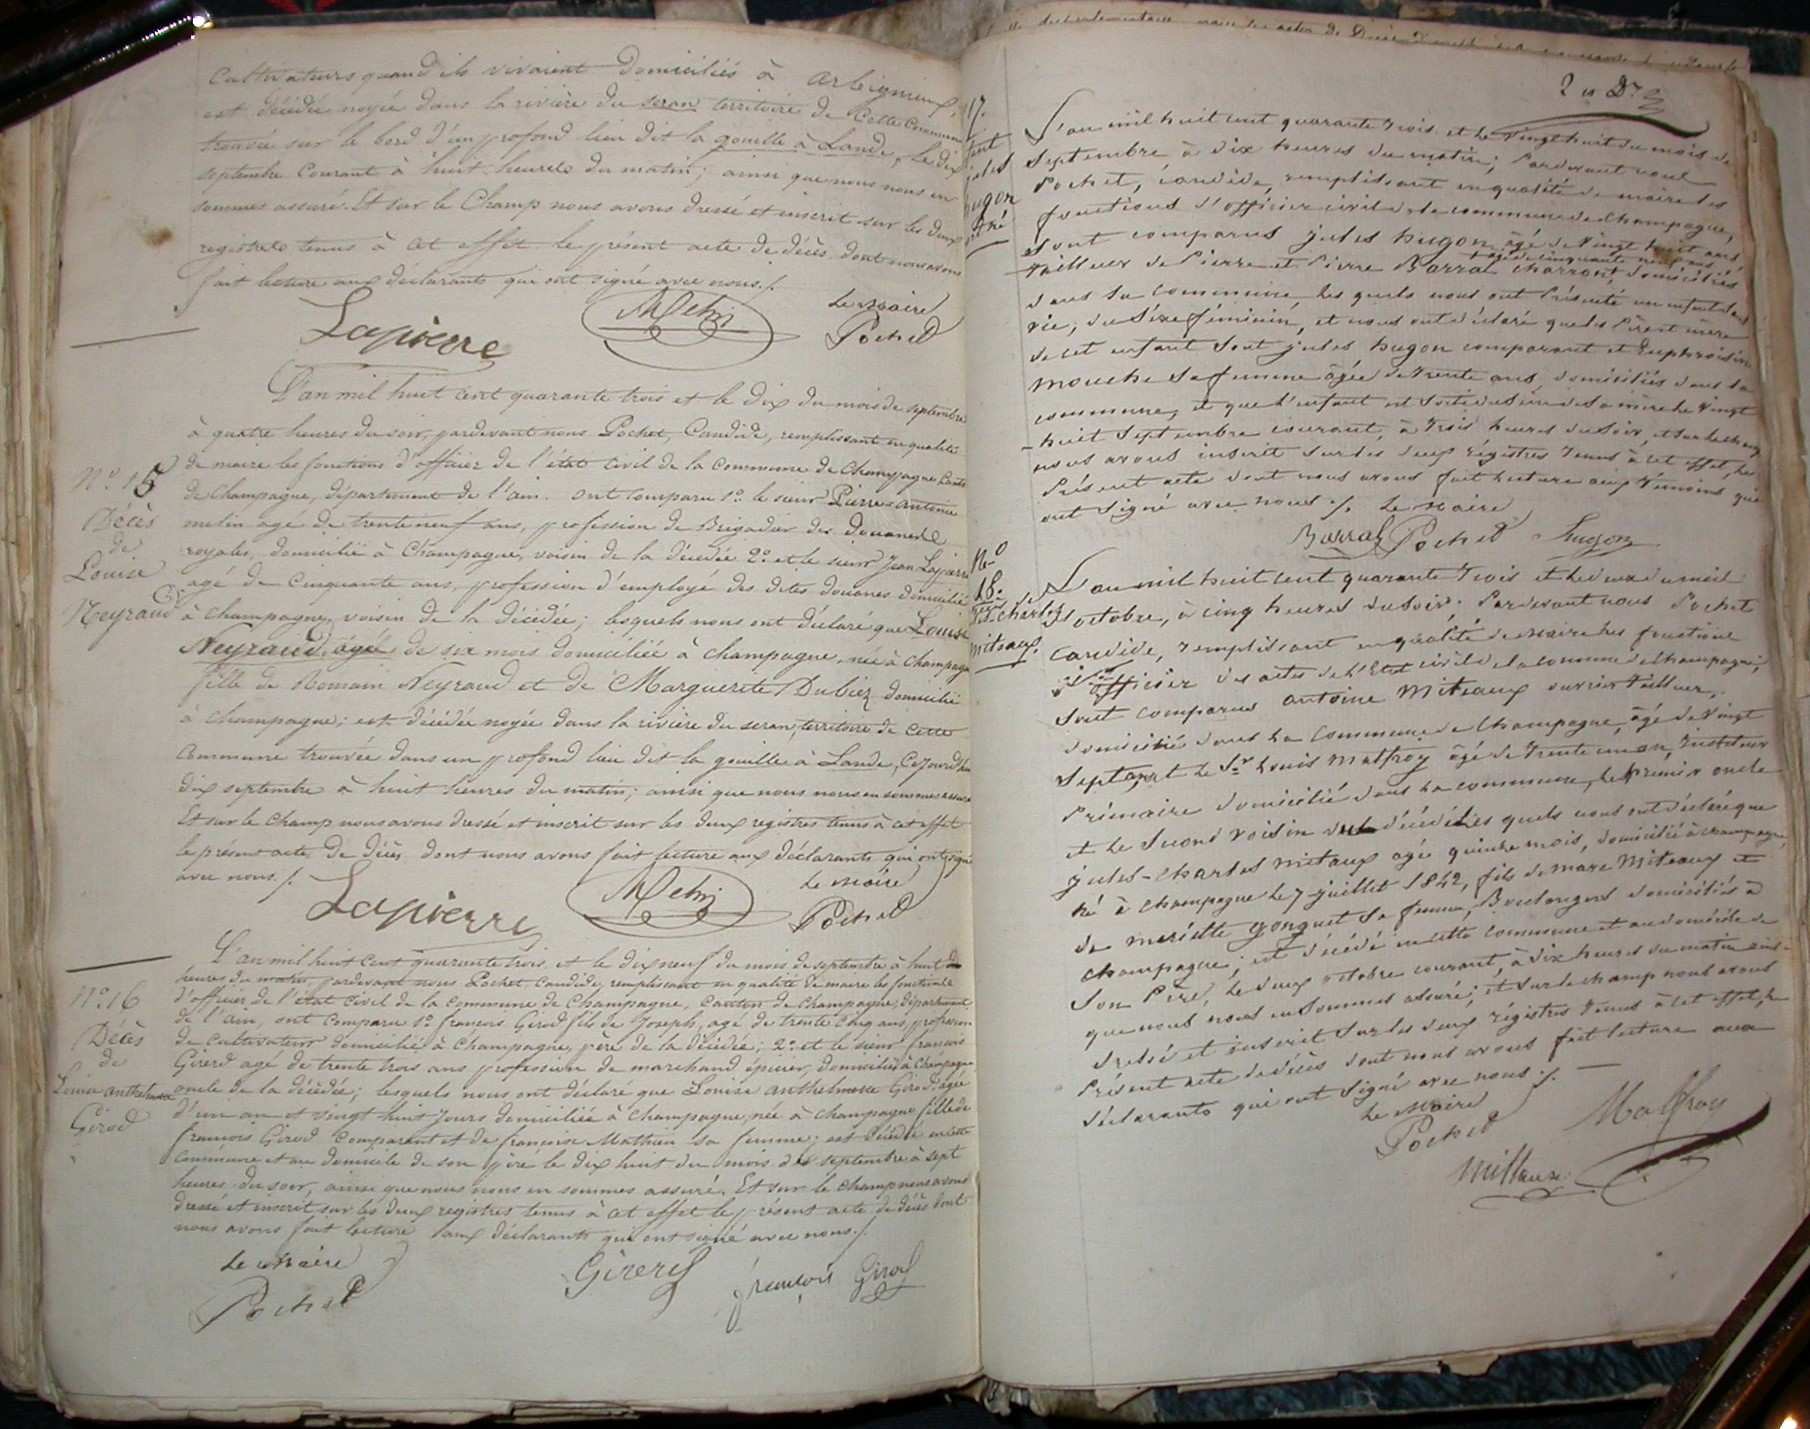 Cultivateurs quand ils vivaient domiciliés à arbignieux,
est décédée noyée dans la rivière du seran territoire de cette Commune
trouvée sur le bord d'un profond lieu dit la gouille à Lande, le dix
septembre Courant à huit heures du matin; ainsi que nous nous en
sommes assuré. Et sur le Champ nous avons dressé et inscrit sur les deux
registres tenus à cet effet le présent acte de décès dont nous avons
fait lecture aux déclarants qui ont signé avec nous ./.
Le Maire
Lapierre Melin Pochet
L'an mil huit cent quarante trois et le dix du mois de septembre
à quatre heures du soir, pardevant nous Pochet, Candide, remplissant en qualité
de maire les fonctions d'officier de l'état civil de la Commune de Champagne, Canton
de Champagne, département de l'ain. ont comparu 1º le sieur Pierre antoine
melin agé de trente neuf ans, profession de Brigadier des Douanes
royales, domicilié à Champagne, voisin de la décédée 2º et le sieur Jean Lapierre
agé de Cinquante ans, profession d'employé des dites douanes domicilié
à Champagne, voisin de la décédée; lesquels nous ont déclaré que Louise
Neyraud, agée de six mois domiciliée à Champagne, née à Champagne
fille de Romain Neyraud et de Marguerite Dubiez domicilié
à Champagne; est décédée noyée dans la rivière du seran, territoire de cette
Commune trouvée dans un profond lieu dit la gouille à Lande, Cejourd'hui
dix septembre à huit heures du matin; ainsi que nous nous en sommes assuré
Et sur le Champ nous avons dressé et inscrit sur les deux registres tenus à cet effet
le présent acte de décès dont nous avons fait lecture aux déclarants qui ont signé
avec nous ./.
Le Maire
Lapierre Melin Pochet
Nº 15
Décès
de
Louise
Neyraud
L'an mil huit cent quarante trois et le dix neuf du mois de septembre à huit
heures du matin pardevant nous Pochet Candide, remplissant en qualité de maire les fonctions
d'officier de l'état civil de la Commune de Champagne, Canton de Champagne, département
de l'ain, ont comparu 1º françois Girod fils de Joseph, agé de trente cinq ans, profession
de Cultivateur domicilié à Champagne, père de la décédée; 2º et le sieur françois
Girerd agé de trente trois ans profession de marchand épicier, domicilié à Champagne
oncle de la décédée; lesquels nous ont déclaré que Louise anthelmette Girod agée
d'un an et vingt huit jours domiciliée à Champagne, née à Champagne fille de
françois Girod Comparant et de françoise Mathieu sa femme; est décédée en cette
Commune et au domicile de son père le dix huit du mois de septembre à sept
heures du soir, ainsi que nous nous en sommes assuré. Et sur le Champ nous avons
dressé et inscrit sur les deux registres tenus à cet effet le présent acte de décès dont
nous avons fait lecture aux déclarants qui ont signé avec nous ./.
Le Maire
Pochet Girerd françois Girod
Nº 16
Décès
de
Louise anthelmette
Girod
2 us Dre
L'an mil huit cent quarante trois et le Vingt huit du mois de
septembre à dix heures du matin; Pardevant nous
Pochet, Candide, remplissant en qualité de maire les
fonctions d'officier civil de la commune de Champagne,
Sont comparus jules hugon, âgé de Vingt huit ans
agé de cinquante neuf ans
tailleur de Pierre et Pierre Barral charront, domiciliés
dans la commune, les quels nous ont Présenté un enfant dans
vie, du séxe féminin, et nous ont déclaré que les Père et mère
de cet enfant sont jules hugon comparant et Euphroisine
mouche sa femme âgée de trente ans, domiciliés dans la
commune, et que l'enfant est sorti du sein de sa mère le Vingt
-huit septembre courant, à trois heures du soir, et sur le champ
nous avons inscrit sur les deux régistres tenus à cet effet, le
Présent acte dont nous avons fait lecture aux témoins qui
ont signé avec nous ./. Le Maire
Barral Pochet hugon
17.
jules
hugon
Nº
18.
Décès de
jules charles
mitaux.
L'an mil huit cent quarante trois et le deux du mois
d'octobre, à cinq heures du soir. Pardevant nous Pochet
Candide, remplissant en qualité de Maire les fonctions
d'officier des actes de l'Etat civil de la commune de Champagne,
sont comparus antoine Miteaux ouvrier tailleur,
domicilié dans la Commune de Champagne, âgé de Vingt
sept ans, et le Sr Louis Malfroy âgé de trente un an, instituteur
Primaire domicilié dans la commune, le Premier oncle
et le second voisin du décédé, les quels nous ont déclaré que
jules-charles mitaux agé quinze mois, domicilié à champagne,
né à Champagne le 7 juillet 1842, fils de marc Miteaux et
de mariette gonguet sa femme, Boulangers domiciliés à
Champagne; est décédé en cette commune et au domicile de
son Père, le deux octobre courant, à dix heures du matin ainsi
que nous nous en sommes assuré; et sur le champ nous avons
dressé et inscrit sur les deux régistres tenus à cet effet, le
Présent acte de décès dont nous avons fait lecture aux
déclarants qui ont signé avec nous ./.
Le Maire
Pochet Malfroy
Mittaux